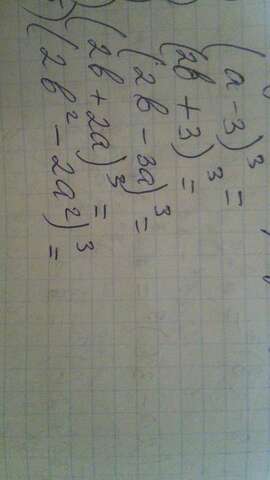 (a - 3)³ =
(2b + 3)³ =
(2b - 3a)³ =
(2b + 2a)³ =
(2b² - 2a²)³ =